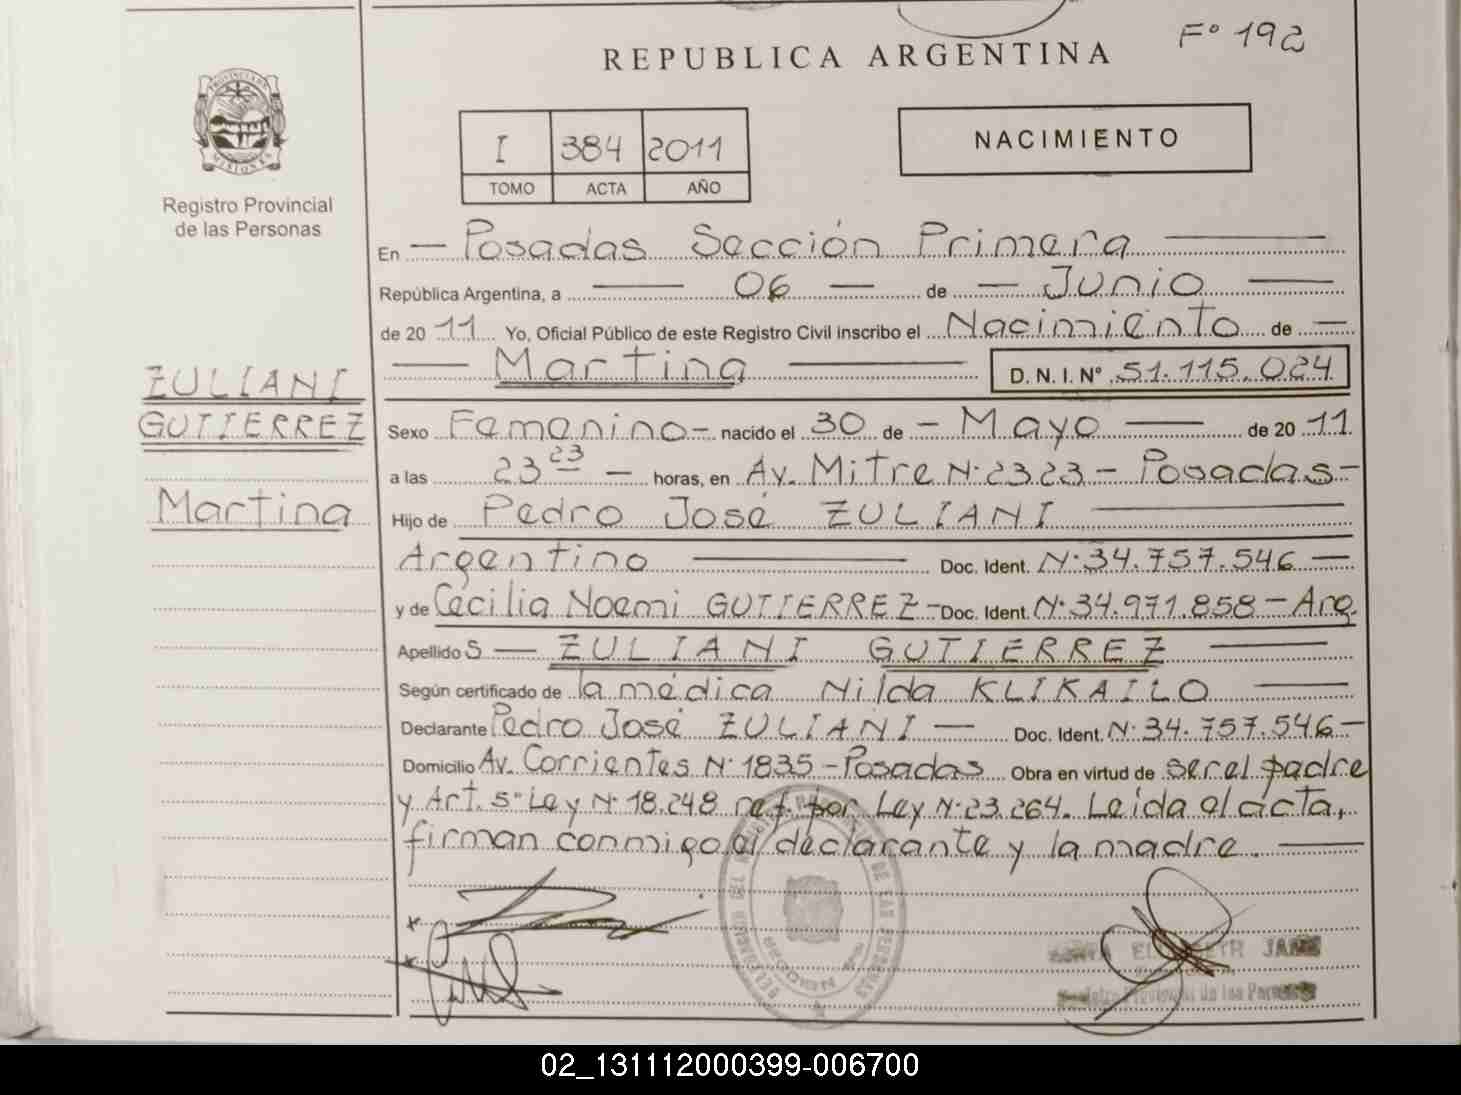 F° 192
REPUBLICA ARGENTINA
PROVINCIA DE
MISIONES
Registro Provincial
de las Personas
I 384 2011
TOMO ACTA AÑO
NACIMIENTO
En Posadas Sección Primera
República Argentina, a 06 de Junio
de 20 11 Yo, Oficial Público de este Registro Civil inscribo el Nacimiento de
Martina D. N. I. N° 51.115.024
ZULIANI
GUTIERREZ
Martina
Sexo Femenino - nacido el 30 de - Mayo de 20 11
a las 23 23 - horas, en Av. Mitre N° 2323 - Posadas -
Hijo de Pedro José ZULIANI
Argentino Doc. Ident. N° 34.757.546
y de Cecilia Noemi GUTIERREZ - Doc. Ident. N° 34.971.858 - Arg.
Apellido s ZULIANI GUTIERREZ
Según certificado de la médica Nilda KLIKAILO
Declarante Pedro José ZULIANI Doc. Ident. N° 34.757.546
Domicilio Av. Corrientes N° 1835 - Posadas Obra en virtud de ser el padre
y Art. 5° Ley N° 18.248 ref. por Ley N° 23.264. Leída el acta,
firman conmigo el declarante y la madre.
DE LAS PERSONAS
02_131112000399-006700